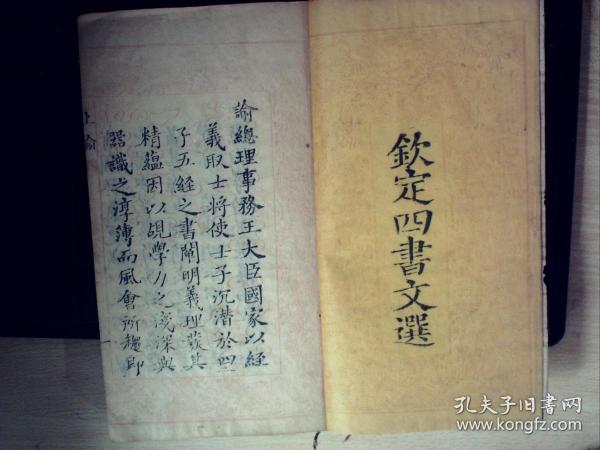 欽定四書文選
諭總理事務王大臣國家以經
義取士將使士子沉潛於四
子五經之書闡明義理發其
精蘊因以覘學力之淺深與
器識之淳薄而風會所趨即
上諭
孔夫子旧书网
www.kongfz.com